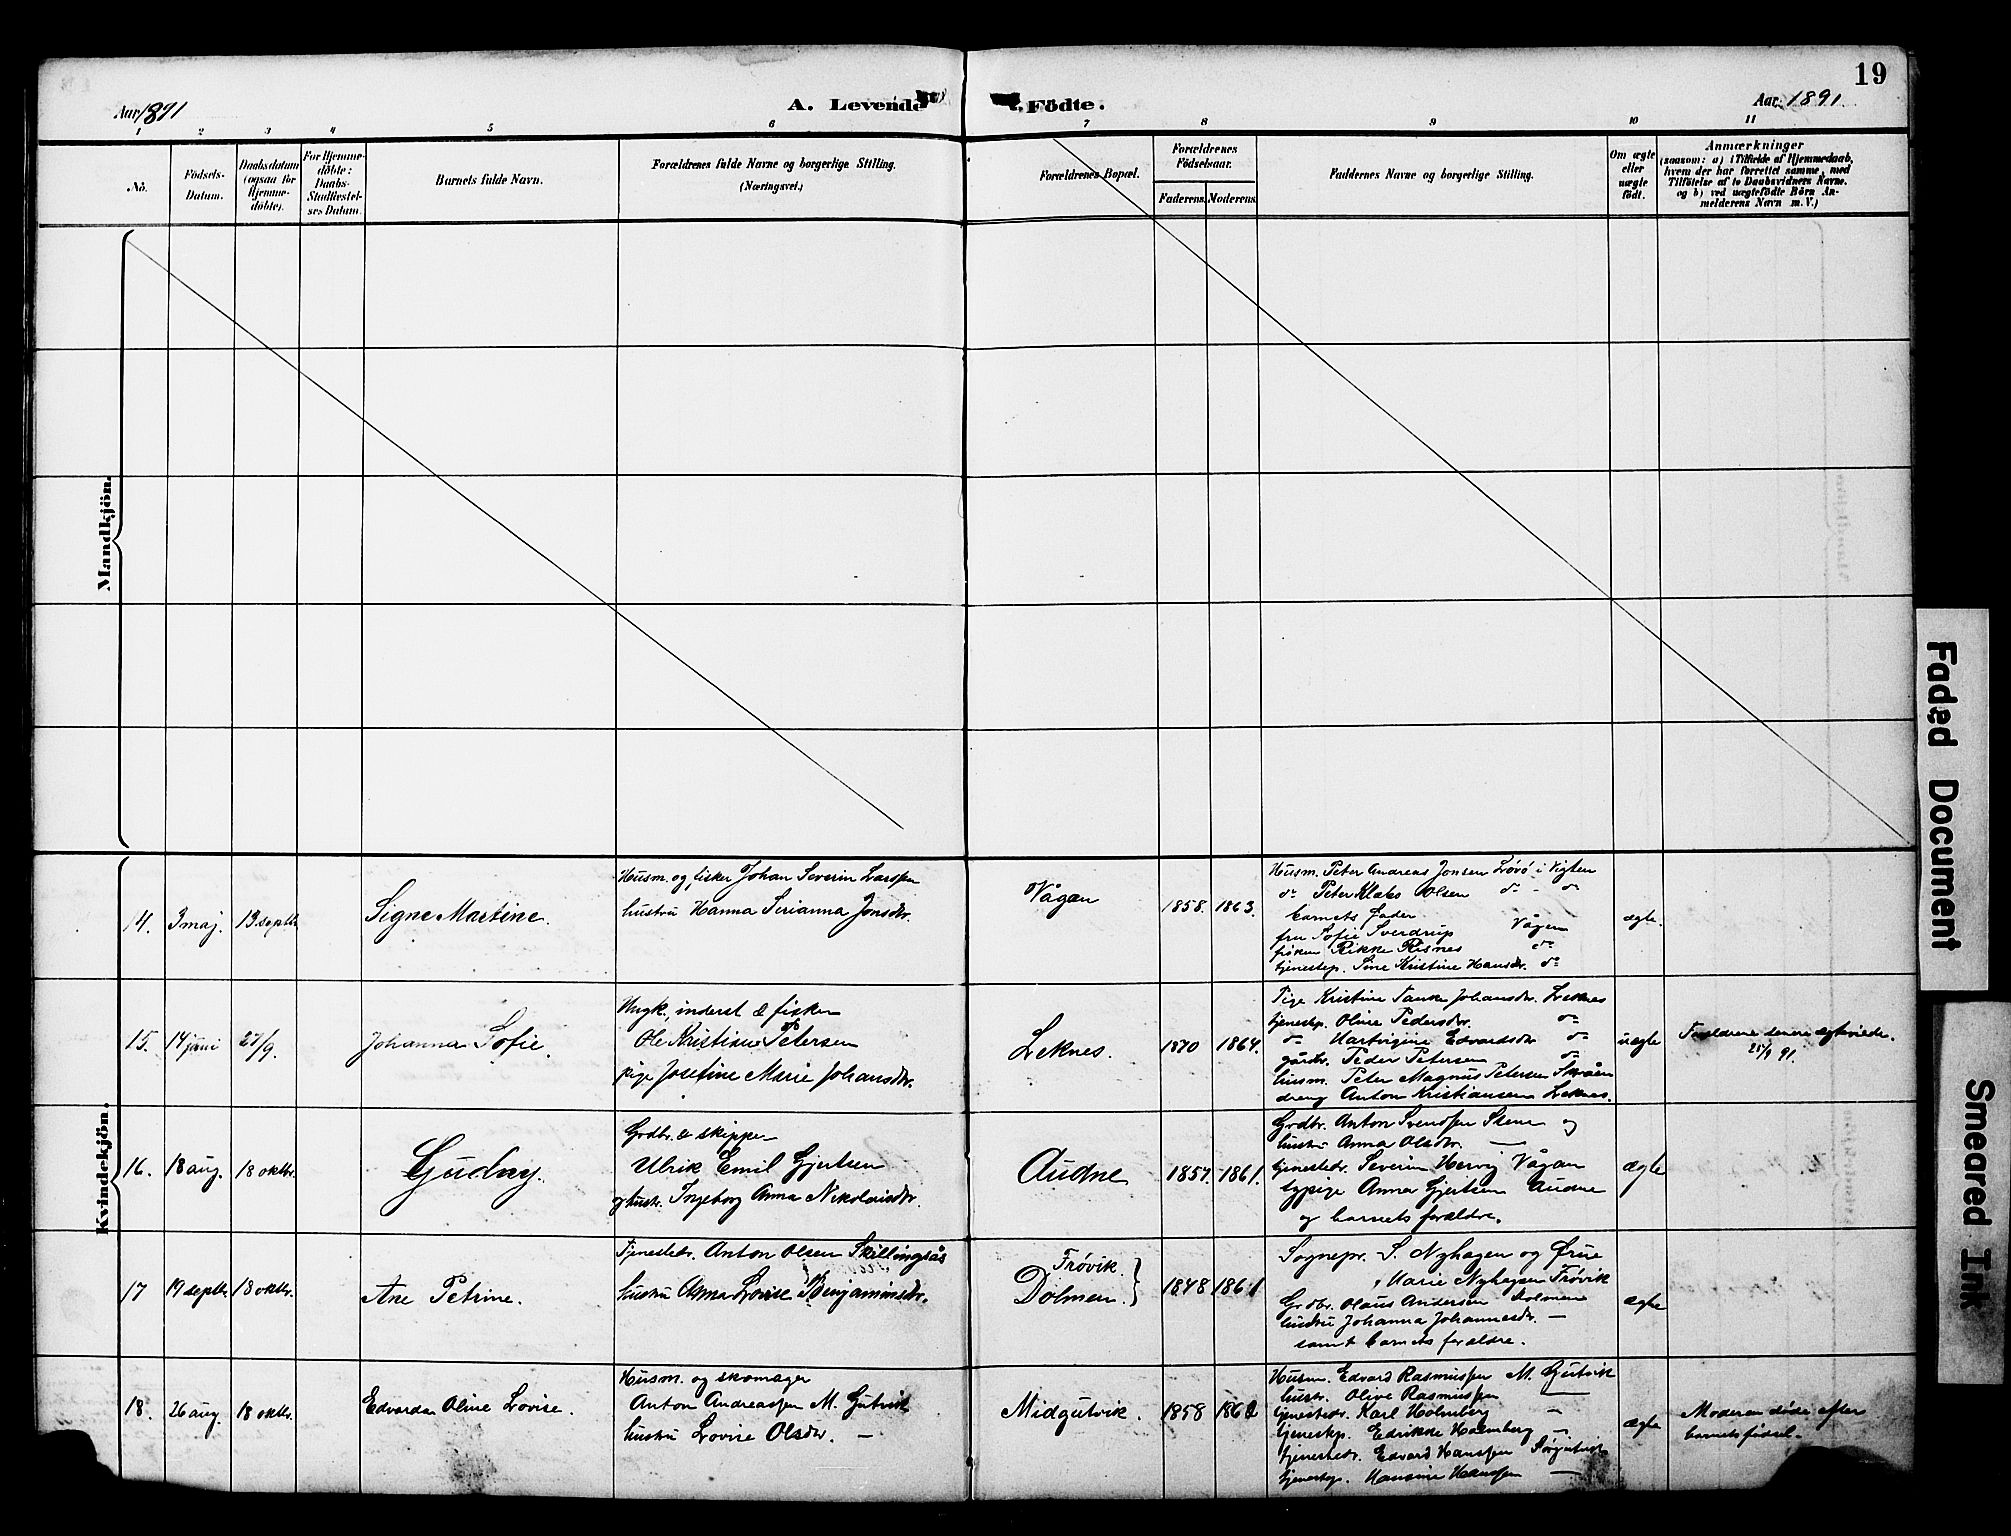 19
Aar 1891
A. Levende
Födte.
Aar 1891
1 2 3 4 5 6 7 8 9 10 11
No.
Födsels-Datum.
Daabsdatum (ogsaa for Hjemme-döbte).
For Hjemme-döbte: Daabs-Stadfæstel-ses Datum.
Barnets fulde Navn.
Forældrenes fulde Navne og borgerlige Stilling.
(Næringsvei.)
Forældrenes Bopæl.
Forældrenes Födselsaar.
Faderens. Moderens.
Faddernes Navne og borgerlige Stilling.
Om ægte eller uægte födt.
Anmærkninger
(saasom: a) i Tilfælde af Hjemmedaab, hvem der har forrettet samme, med Tilföielse af to Daabsvidners Navne. og b) ved uægtefödte Börn An-melderens Navn m. V.)
Mandkjön.
Kvindekjön.
14. 3 maj. 13 septbr.
Signe Martine.
Husm. og fisker Johan Severin Larssen
hustru Hanna Sirianna Jonsdtr.
Vågan
1858. 1863.
Husm. Peter Andreas Jonsen Lövö i Vigten
do Peter Klabs Olsen do - do
barnets fader
fru Sofie Sverdrup Vågan
fröken Rikke Risnes do
tjenestep. Sine Kristine Hansdtr. do
ægte.
15. 14 juni 27/9.
Johanna Sofie.
Ungk., inderst & fisker
Ole Kristian Petersen
pige Josefine Marie Johansdtr.
Leknes.
1870 1864.
Pige Kristine Tanke Johansdtr. Leknes
tjenestep. Oline Pedersdtr. do
do Hartvigine Edvardsdtr do
gårdbr. Peder Petersen do
husm. Peter Magnus Petersen Skråen
dreng Anton Kristiansen Leknes.
uægte
Forældrene senere ægteviede.
25/9 91.
16. 18 aug. 18 oktbr.
Gudny.
Grdbr. & skipper
Ulrik Emil Gjertsen
og hustr. Ingeborg Anna Nikolaisdtr.
Audne
1857. 1861.
Grdbr. Anton Svendsen Stene og
hustru Anna Olsdtr. —
tjenestedr. Severin Hervig Vågan
pige Anna Gjertsen Audne
og barnets forældre.
ægte
17 19 septbr. 18 oktbr.
Ane Petrine.
Tjenestedr. Anton Olsen Skillingsås
hustru Anna Lovise Benjaminsdtr.
Frövik.
Dolmen.
1848 1861
Sognepr. S. Nyhagen og
Marie Nyhagen Frövik
Grdbr. Olaus Andersen Dolmen
hustru Johanna Johannesdtr. —
samt barnets forældre.
ægte
18. 26 aug. 18 oktbr.
Edvarda Oline Lovise.
Husm. og skomager
Anton Andreassen M. Gutvik
hustru Lovise Olsdtr. —
Midgutvik.
1858 1862
Husm. Edvard Rasmussen M. Gutvik
hustr. Olive Rasmussen —
tjenestedr. Karl Holmberg —
tjenestep. Edrikke Holmberg —
tjenestedr. Edvard Hanssen Sörgutvik
tjenestep. Hansine Hanssen —
ægte
Moderen döde efter
barnets födsel.
Faded Document
Smeared Ink